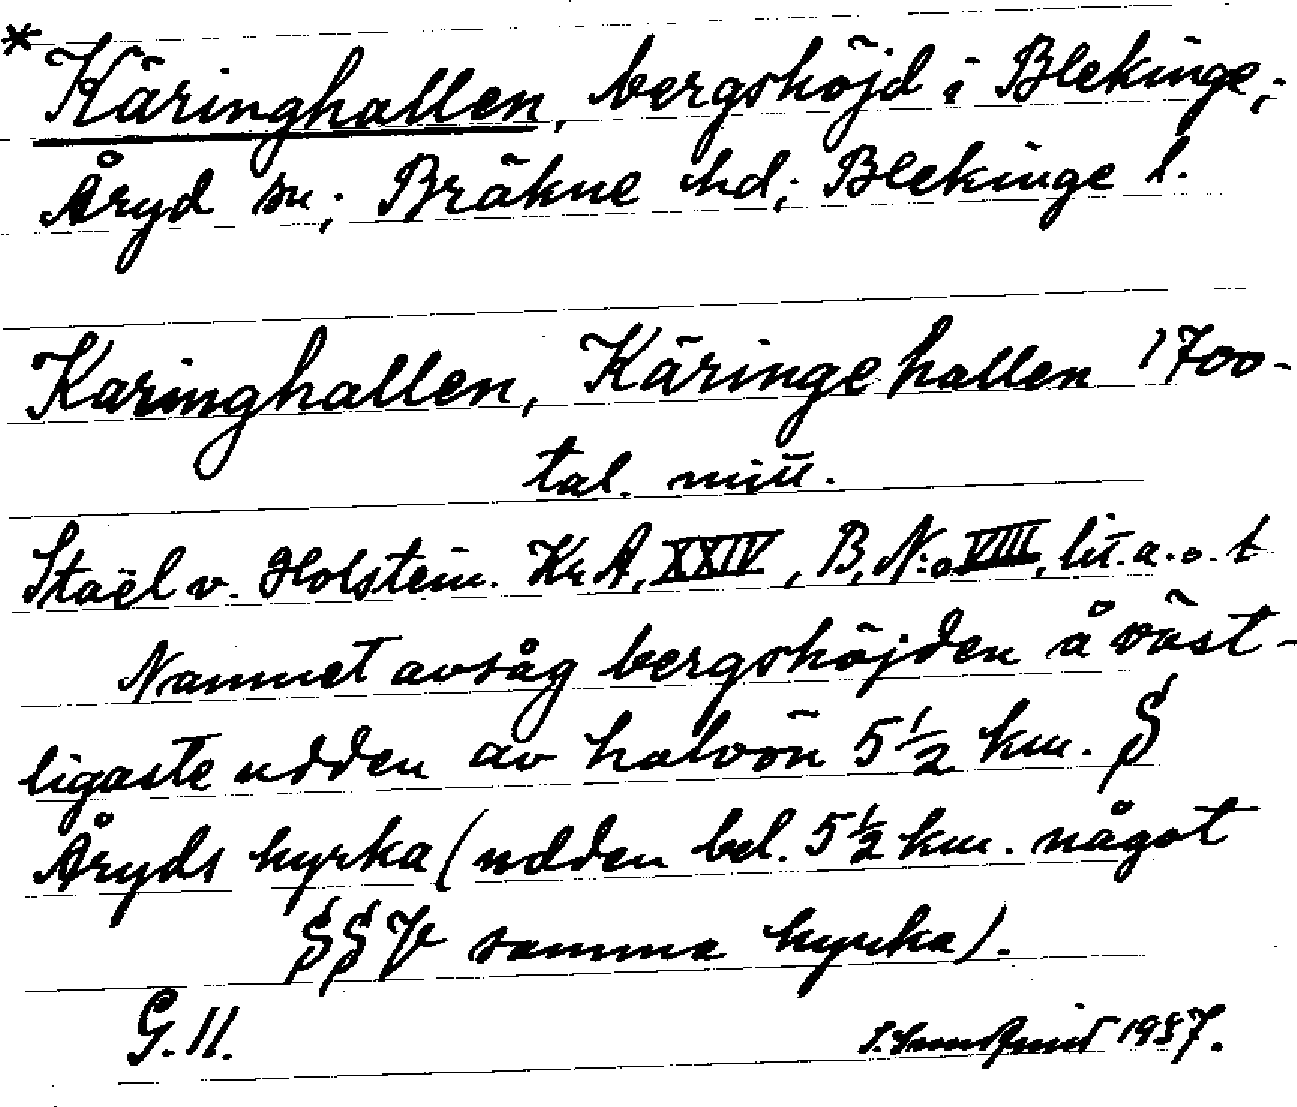 * Käringhallen, bergshöjd i Blekinge;
Åryd sn; Bräkne hd; Blekinge l.
Karinghallen, Käringehallen 1700-
tal. mitt.
Staël v. Holstein. Kr. A, XXIV, B, N:o VIII, litt. a. o. t
Namnet avsåg bergshöjden å väst-
ligaste udden av halvön 5 1/2 km. S
Åryds kyrka (udden bel. 5 1/2 km. något
SSV samma kyrka).
G. 11.
1937.